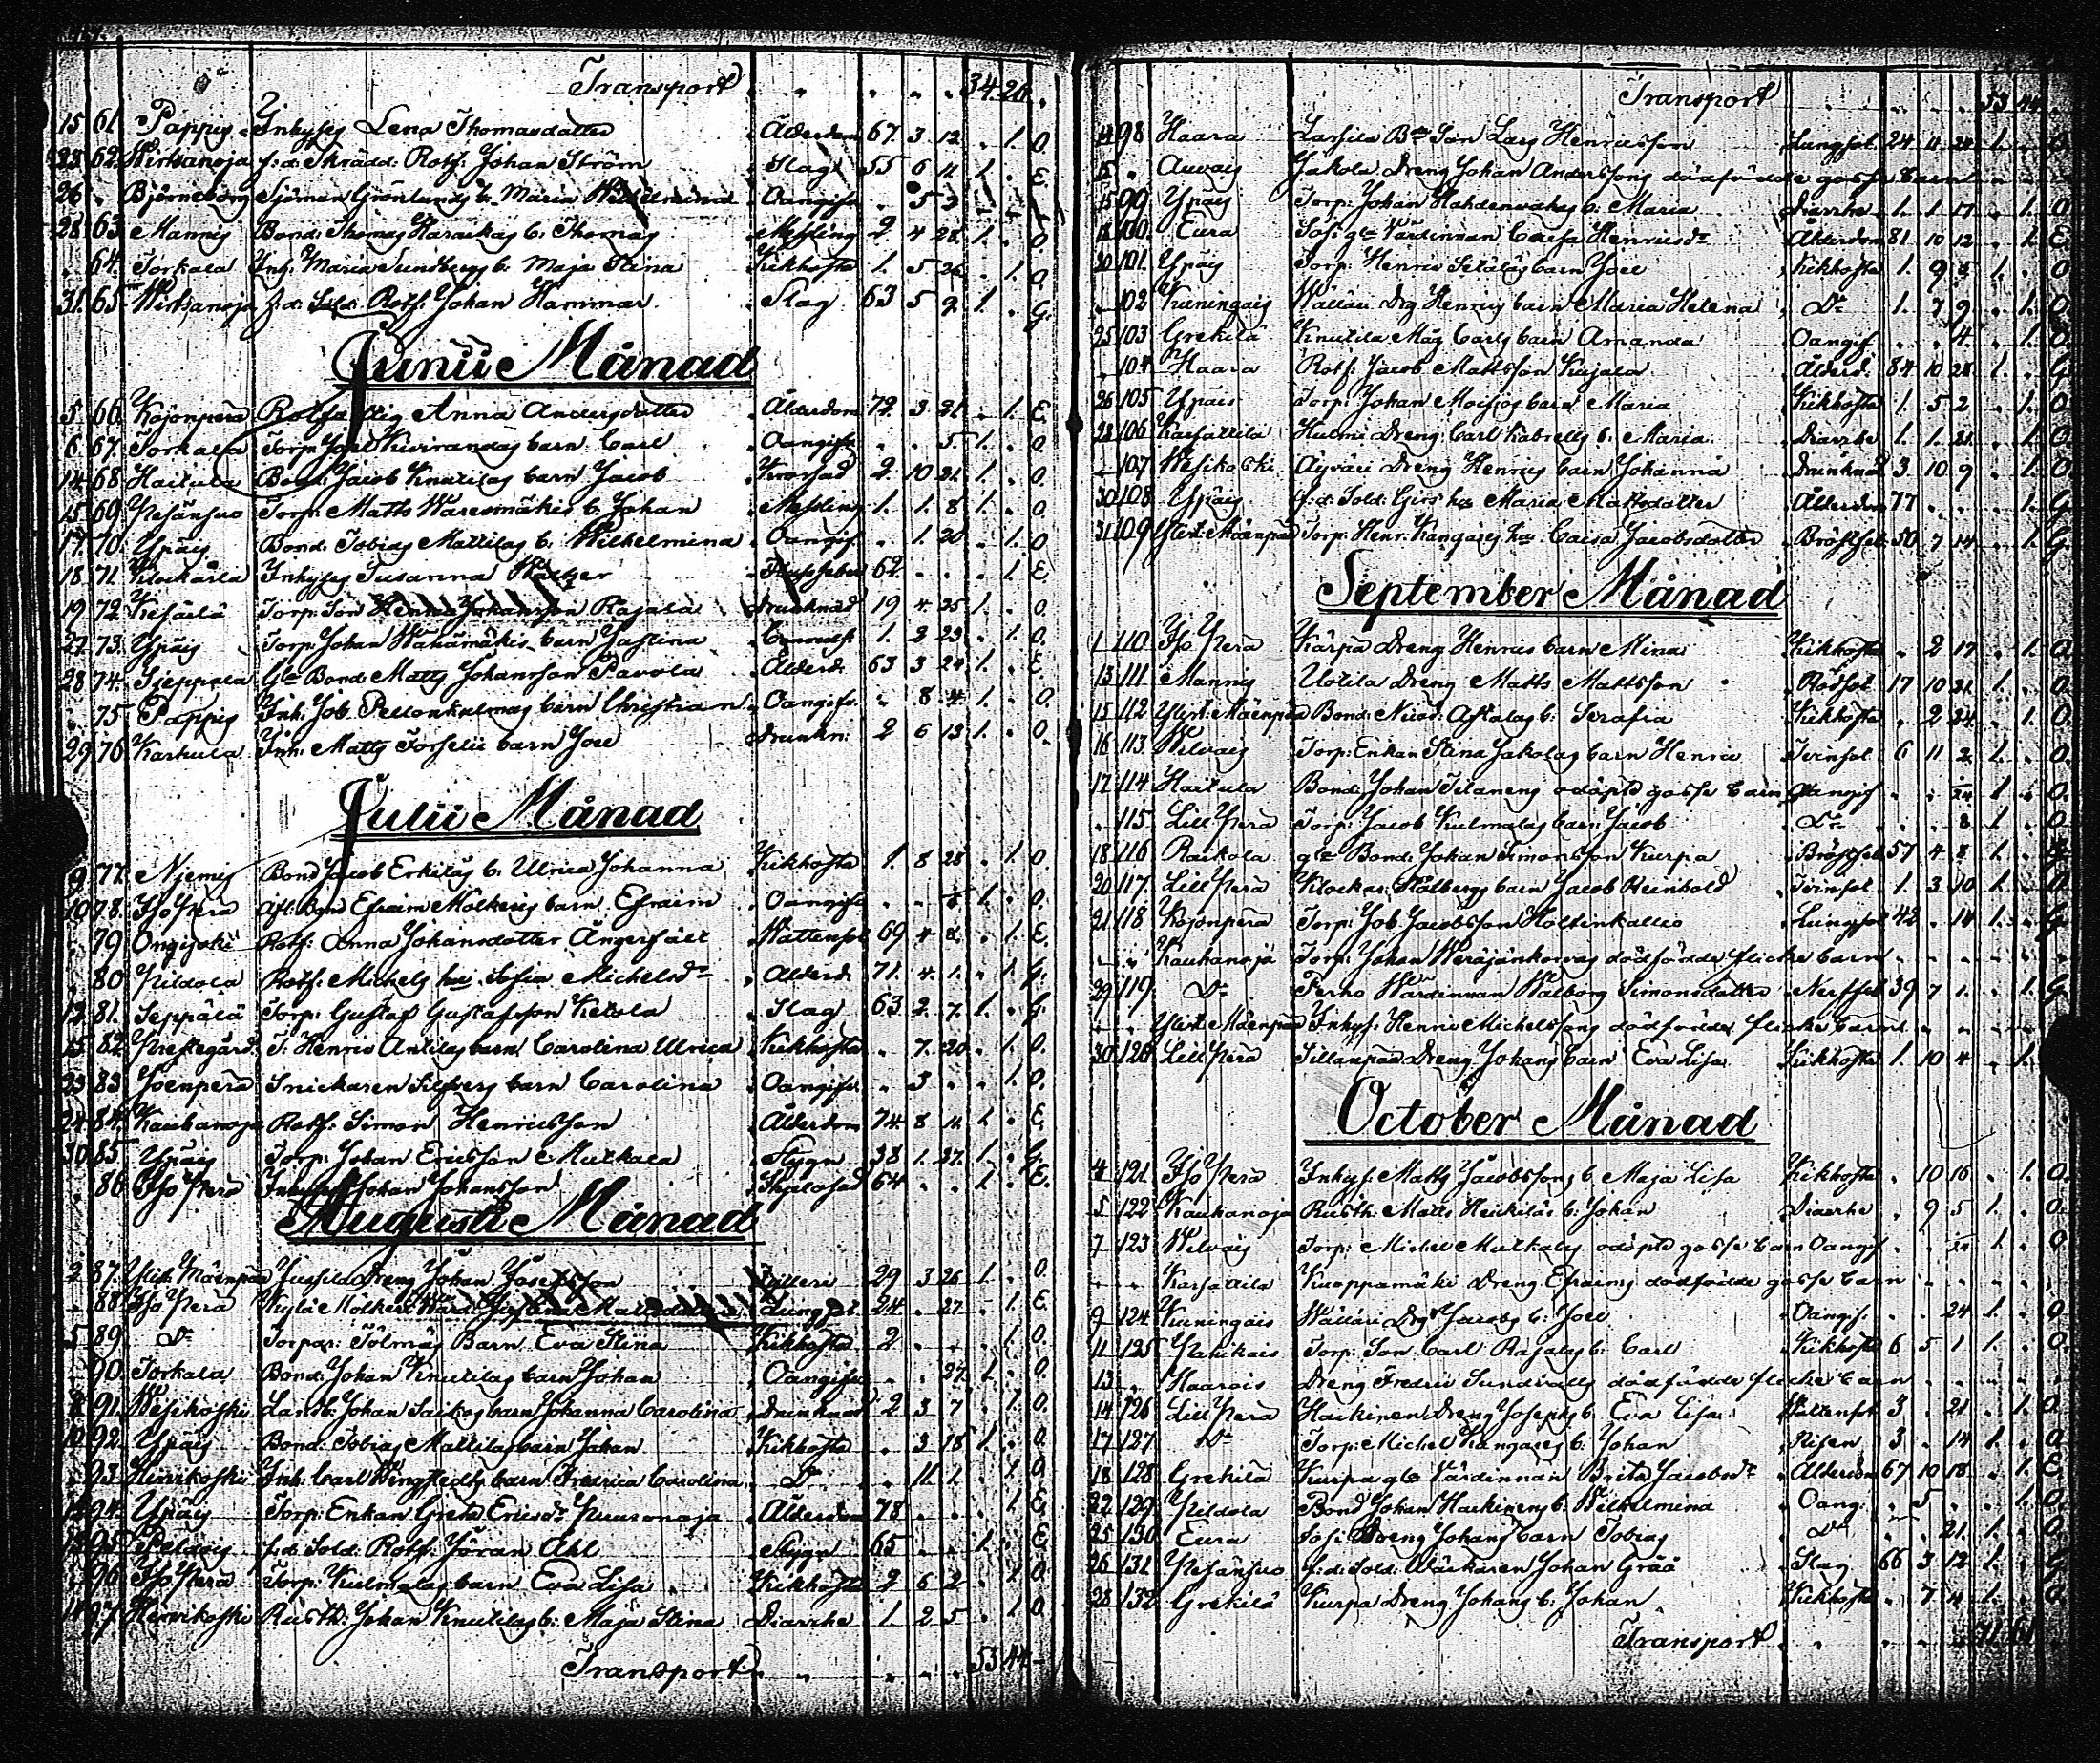 Transport " " " " 34. 26.
15 61 Pappis Inhyses Lena Thomasdotter Ålderdom 67. 3 12 . 1. O.
23 62 Wirtsanoja f:d: Skrädd: Rotf: Johan Ström Slag 55 6 11 1 . E.
26 . Björneborg Sjöman Grönlunds b. Maria Wilhelmina Oangifv . 5 3
28 63 Mannis Bond: Thomas Haraikas b: Thomas Messling 2 4 28 1. . O
. 64. Torkala Inh: Maria Sundbergs b: Maja Stina Kikhosta 1. 5 26 . 1. O.
31. 65 Wirtsanoja f:d: Sold: Rotf: Johan Hammar Slag 63 5 9. 1 . G.
Junii Månad
5 66 Kojonperä Rotfattig Anna Andersdotter Ålderdom 72. 3 21. . 1. E.
6 67. Torkala Torp: Kuvirandas barn Carl Oangifv . . 5 1. . O.
14 68 Haitula Bond: Jacob Knutilas barn Jacob 2. 10 21. 1. . O
15 69 Pesänsuo Torp: Matts Waresmäkis b. Johan Messling 1. 1. 8 1. . O
17. 70. Ypäis Bond: Tobias Mattilas b: Wilhelmina Oangif. . 1. 20 . 1. O
18 71. Klockarla Inhyses Susanna 62. . . . 1. E.
19 72. Torp: Son Johansson Rajala Drunknad 19 4 25 1. . O.
27. 73. Ypäis Torp: Johan Wahämäkis barn Justina 1. 2 23 . 1. O.
28 74. Sieppala Gle Bond: Matts Johansson Pavola Ålderd: 63 3 24 1. . E.
. 75 Pappis Inh: Job. Pellonkulmas barn Christian Oangifv. . 8 4. 1. . O.
29 76 Karhula Inh: Matts Torselii barn Joel Drunkn: 2 6 13 1. . O.
Julii Månad
9 77. Njemis Bond Jacob Erkiläs b: Ulrica Johanna Kikhosta 1. 8 28 . 1. O.
10 78. Iso Perä Afl: Bond Efraim Mölkeris barn Efraim Oangifv . . 1. . O.
. 79 Ongijoki Rotf: Anna Johansdotter Ångerfält Wattensot 69 4 8. . 1. E.
. 80 Pildola Rotf: Michels hu Sofia Michelsdr Ålderd. 71. 4. 1. . 1. G.
13 81. Seppälä Torp: Gustaf Gustafsson Ketola Slag 63 2. 7. 1. . G.
15 82. Prestegård T. Henric Antilas barn Carolina Ulrica Kikhosta . 7. 20 . 1. O.
23 83 Joenperä Snickaren Silfbergs barn Carolina Oangifv . 3 . . 1. O.
24 84. Kauhanoja Rotf: Simon Henricsson Ålderdom 74. 8 11. 1. . E.
30 85 Ypäis Torp: Johan Ericsson Mulkala Stygn 38 1. 27. 1. . G.
. 86 Iso Perä Inhyses Johan Johansson 64 . . 1. . E.
Augusti Månad
2 87. Ylist: Mäenpää Jussila Dreng Johan Josefsson 29 3 26 1. . O.
. 88 Iso Perä Kylä Mölkeri Justina Mattsdotter Lungsot 24. . 27. . 1. E.
5 89 Do Torpar: Tölmäs Barn Eva Stina Kikhosta 2 . . . 1. O.
. 90. Torkala Bond: Johan Knutilas barn Johan Oangifv . . 27. 1. . O.
8 91. Wesikoski Landb: Johan Saikas barn Johanna Carolina Drunknad 2 3 7 . 1. O.
10 92. Ypäis Bond: Tobias Mattilas barn Johan Kikhosta . 3 18 1. . O
. 93. Hinrikoski Inh: Carl Wingstedts barn Fredrica Carolina Do . 11. 1 . 1. O
94. Ypäis Torp: Enkan Greta Ericsdr Puusonoja Ålderdom 78 . . . 1. E.
95. Peldois f:d: Sold: Rotf: Jöran Ahl Stygn 65 . . 1. . E
96. Iso Perä Torp: Kulmalas barn Eva Lisa Kikhosta 2 6 2 . 1. O.
97. Henrikoski Rusth: Johan Knutilas b: Maja Stina Diarrhe 1. 2 5 . 1. O.
Transport " " " " 53 44 –
Transport . . . . 53 44
14 98 Haara Lassila Bde Son Lars Henricsson Lungsot. 24 11 24 1. . O.
15 . Auvais Jakola Dreng Johan Anderssons dödfödde gosse barn
15 99 Ypäis Torp: Johan Hahdenvahas b: Maria Diarrhe 1. 1 17 . 1. O.
100. Eura Sofi: gle Värdinnan Caisa Henricsdr Ålderdom 81 10 12 . 1. E.
20 101. Ypäis Torp: Henric Setäläs barn Joel Kikhosta 1. 9 5 1. . O.
102 Kuningais Wälläri Drg Henrics barn Maria Helena Do 1. 7 9 . 1. O.
25 103 Grekilä Knutila Måg Carls barn Amanda Oangif. . . 4. . 1. O.
104 Haara Rotf: Jacob Mattsson Kujala Ålderd. 84 10 28 1. . G.
26 105 Ypäis Torp: Johan Moisios barn Maria Kikhosta 1. 5 2 . 1. O.
28 106 Karhattila Hulmi Dreng: Carl Kabrells b: Maria Diarrhe 1. 1. 21 . 1. O.
107 Wesikoski Äyväri Dreng Henrics barn Johanna Drunknad 3 10 9 . 1. O.
30 108 Ypäis f:d: Sold: Girs hu Maria Mattsdotter Ålderdom 77 . . . 1. G.
31 109 Ylist: Mäenpää Torp: Henr: Kangais hu Caisa Jacobsdotter Bröstsot. 50 7 14 . 1. G.
September Månad
1 110 Iso Perä Kärpä Dreng Henrics barn Mina Kikhosta . 2 17 . 1. O.
13 111 Mannis Uotila Dreng Matts Mattsson Rödsot 17 10 21. 1. . O.
15 112 Ylist: Mäenpää Bond: Nicod: Astalas b: Serafia Kikhosta . 2 24. . 1. O.
16 113 Wilvais Torp: Enkan Stina Jakolas barn Henric Tvinsot 6 11 2. 1. . O.
17 114 Haitula Bond: Johan Tilanens odöpte gosse barn Oangif . . 24 1 . O.
115. Lill Perä Torp: Jacob Kulmalas barn Jacob Do . . 8 1. . O
18 116 Raikola gle Bond: Johan Simonsson Kurpa Bröstsot 57 4 8 1.
20 117. Lill Perä Klockar: Stålbergs barn Jacob Reinhold Tvinsot. 1. 3 10 1. . O.
21 118 Kojonperä Torp: Job Jacobsson Holtinkallio Lungsot 42 . 14 1. . G
Kauhanoja Torp: Johan Weräjänkorvas dödfödde flicke barn
29 119 Do Terho Wärdinnan Walborg Simonsdotter Nerfsot 39 7 1. . 1. G.
Ylist: Mäenpää Inhys: Henric Michelssons dödfödde flicke barn
30 120 Lill Perä Sillanpää Dreng Johans barn Eva Lisa Kikhosta 1. 10 4 . 1.
October Månad
4 121. Iso Perä Inhys: Matts Jacobssons b. Maja Lisa Kikhosta . 10 16 . 1. O.
5 122 Kauhanoja Rusth: Matts Heickiläs b: Johan Diarrhe . 9 5 1. . O.
7 123 Wilvais Torp: Michel Mulkalas odöpte gosse barn Oangif. . . 1. . O.
Karhattila Knappamäki Dreng Efraims dödfödde gosse barn
9 124 Kuningais Wälläri Drg Jacobs b: Joel Oangif. . . 24 1. . O.
11 125 Pahikais Torp: Son Carl Rajalas b: Carl Kikhosta 6 5 1 1. . O.
13 . Haarois Dreng Fredric Sundvalls dödfödde flicke barn
14 126 Lill Perä Haikinen Dreng Josephs b. Eva Lisa Wattensot 3 . 21 . 1. O.
17 127 Do Torp: Michel Kangases b: Johan Risen 3 . 14 1. . O.
18 128 Grekilä Kurpa gle Värdinnan Brita Jacobsdr Ålderdom 67 10 18 . 1. E.
22 129 Pildola Bond Johan Haikinens b: Wilhelmina Oang. . 5 . . 1. O.
25 130 Eura Sofi: Dreng Johans barn Tobias Do . . 21. 1. . O.
26 131. Pesänsuo f:d: Sold: Wäckaren Johan Grää Slag 66 3 12 1. . G
28 132 Grekilä Kurpa Dreng Johans b: Johan Kikhosta . 7 4 1. . O.
Transport . . . . 71. 61.